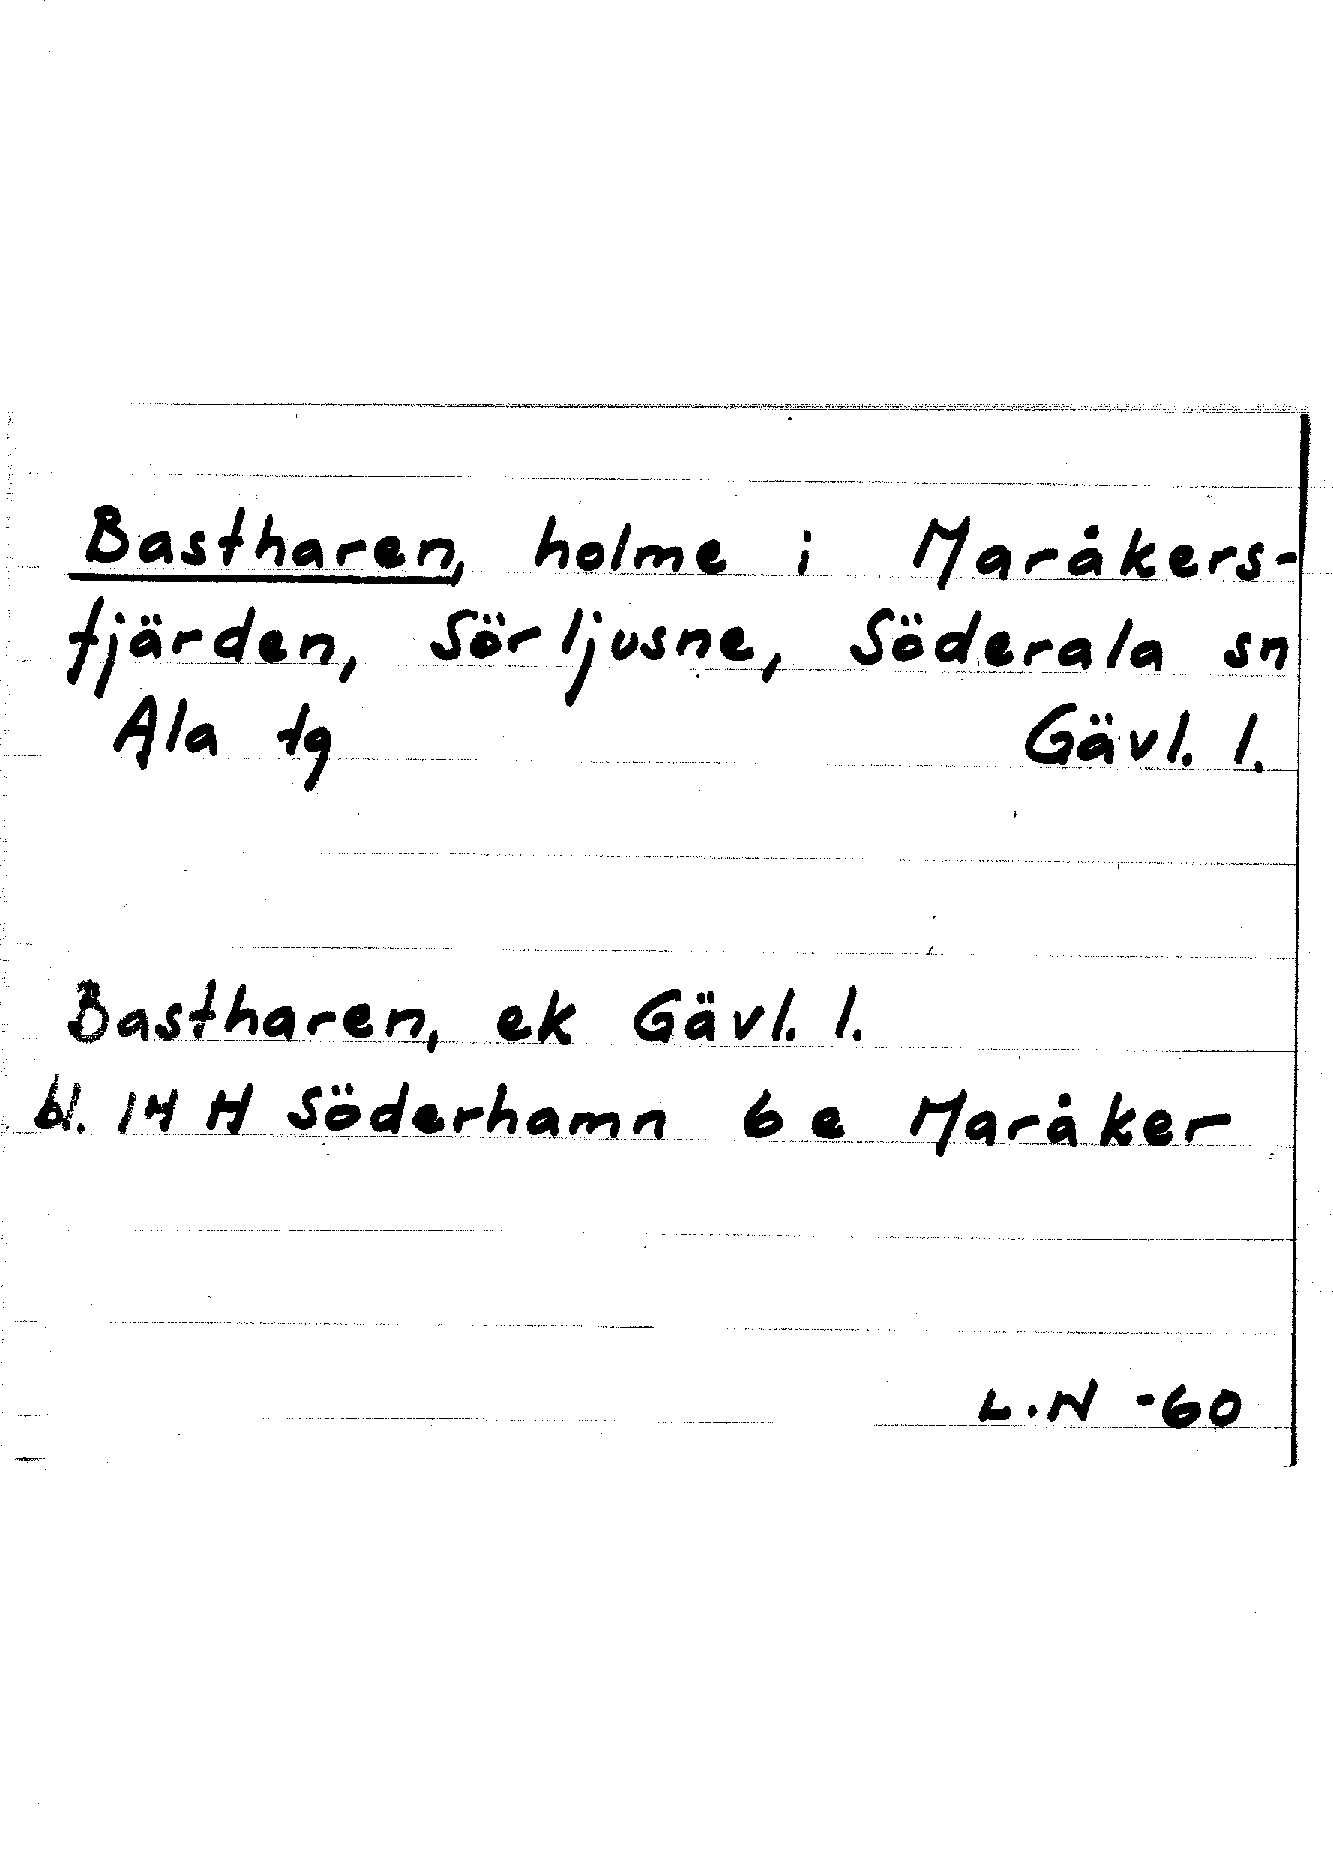 Bastharen, holme i Maråkers-
fjärden, Sörljusne, Söderala sn
Ala tg Gävl. l.
Bastharen, ek Gävl. l.
bl. 14 H Söderhamn 6 e Maråker
L.N -60